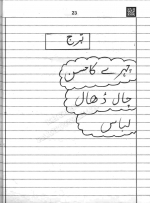 23
تدرج
چہرے کا حسن
چال ڈھال
لباس